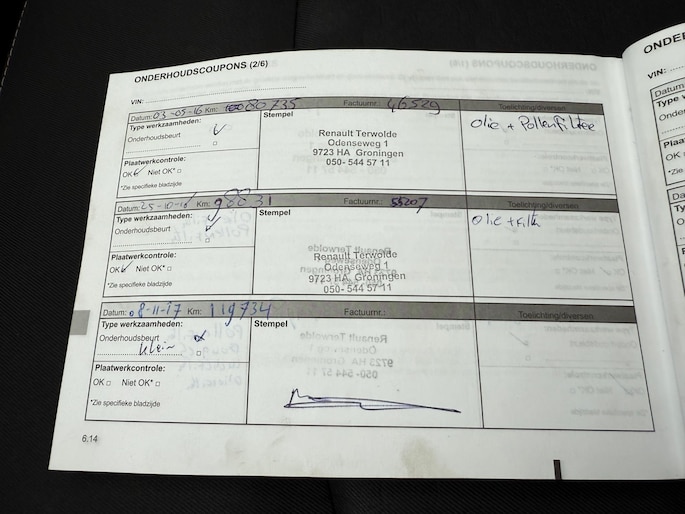 ONDERHOUDSCOUPONS (2/6)
VIN:
Datum: 03-05-16 Km: 60735 Factuurnr.: 46529 Toelichting/diversen
Type werkzaamheden:
Onderhoudsbeurt
Stempel
Renault Terwolde
Odenseweg 1
9723 HA Groningen
050- 544 57 11
Olie + Pollenfilter
Plaatwerkcontrole:
OK Niet OK*
*Zie specifieke bladzijde
Datum: 25-10-16 Km: 98031 Factuurnr.: 55207 Toelichting/diversen
Type werkzaamheden:
Onderhoudsbeurt
Stempel
Renault Terwolde
Odenseweg 1
9723 HA Groningen
050- 544 57 11
Olie + Filter
Plaatwerkcontrole:
OK Niet OK*
*Zie specifieke bladzijde
Datum: 08-11-17 Km: 119734 Factuurnr.: Toelichting/diversen
Type werkzaamheden:
Onderhoudsbeurt
Klein
Stempel
Plaatwerkcontrole:
OK Niet OK*
*Zie specifieke bladzijde
6.14
VIN: